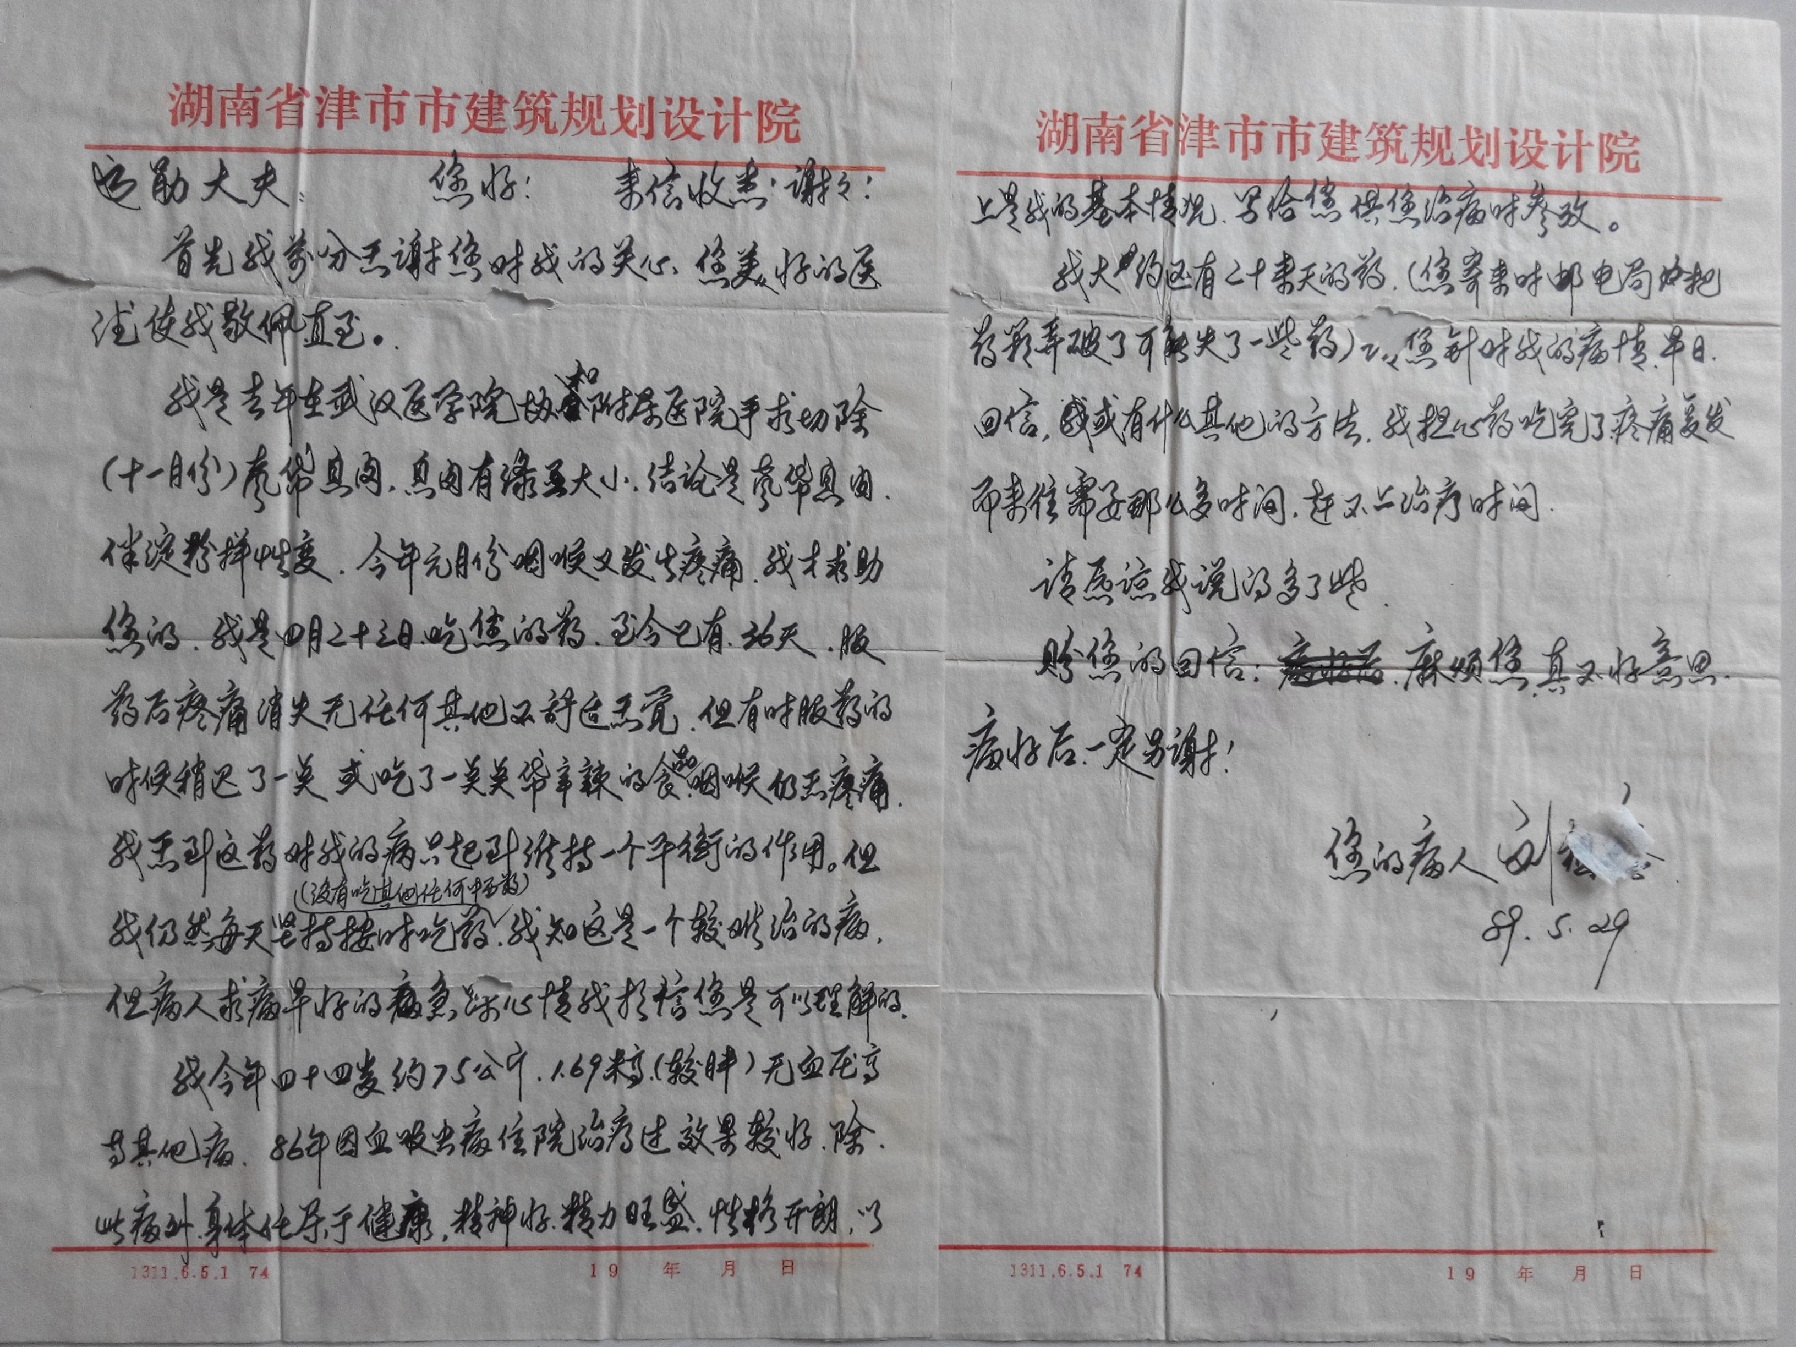 湖南省津市市建筑规划设计院
远勋大夫： 您好： 来信收悉：谢谢：
首先我万分感谢您对我的关心、您美好的医
德使我敬佩直至。
我是去年在武汉医学院协和附属医院手术切除
（十一月份）声带息肉，息肉有绿豆大小，结论是声带息肉，
伴淀粉样性变，今年元月份咽喉又发生疼痛，我才求助
您的，我是四月二十三日吃您的药，至今已有36天，服
药后疼痛消失无任何其他不舒适感觉，但有时服药的
时候稍迟了一点或吃了一点点带辛辣的食品咽喉仍感疼痛，
我感到这药对我的病只起到维持一个平衡的作用。但
（没有吃其他任何中西药）
我仍然每天坚持按时吃药，我知这是一个较难治的病，
但病人求病早好的急心情我相信您是可以理解的，
我今年四十四岁约75公斤，1.69米高（较胖）无血压高
等其他病，86年因血吸虫病住院治疗过效果较好，除
此病外，身体任属于健康，精神好，精力旺盛，性格开朗，以
1311.6.5.1 74 19 年 月 日
湖南省津市市建筑规划设计院
上是我的基本情况，写给您供您治病时参考。
我大约还有二十来天的药，（您寄来时邮电局把
药瓶弄破了可能失了一些药）您针对我的病情，早日
回信，或有什么其他的方法，我担心药吃完了疼痛复发
而来信需要那么多时间，赶不上治疗时间
请原谅我说的多了些
盼您的回信：麻烦您，真不好意思，
病好后一定另谢！
您的病人 刘
89.5.29
1311.6.5.1 74 19 年 月 日